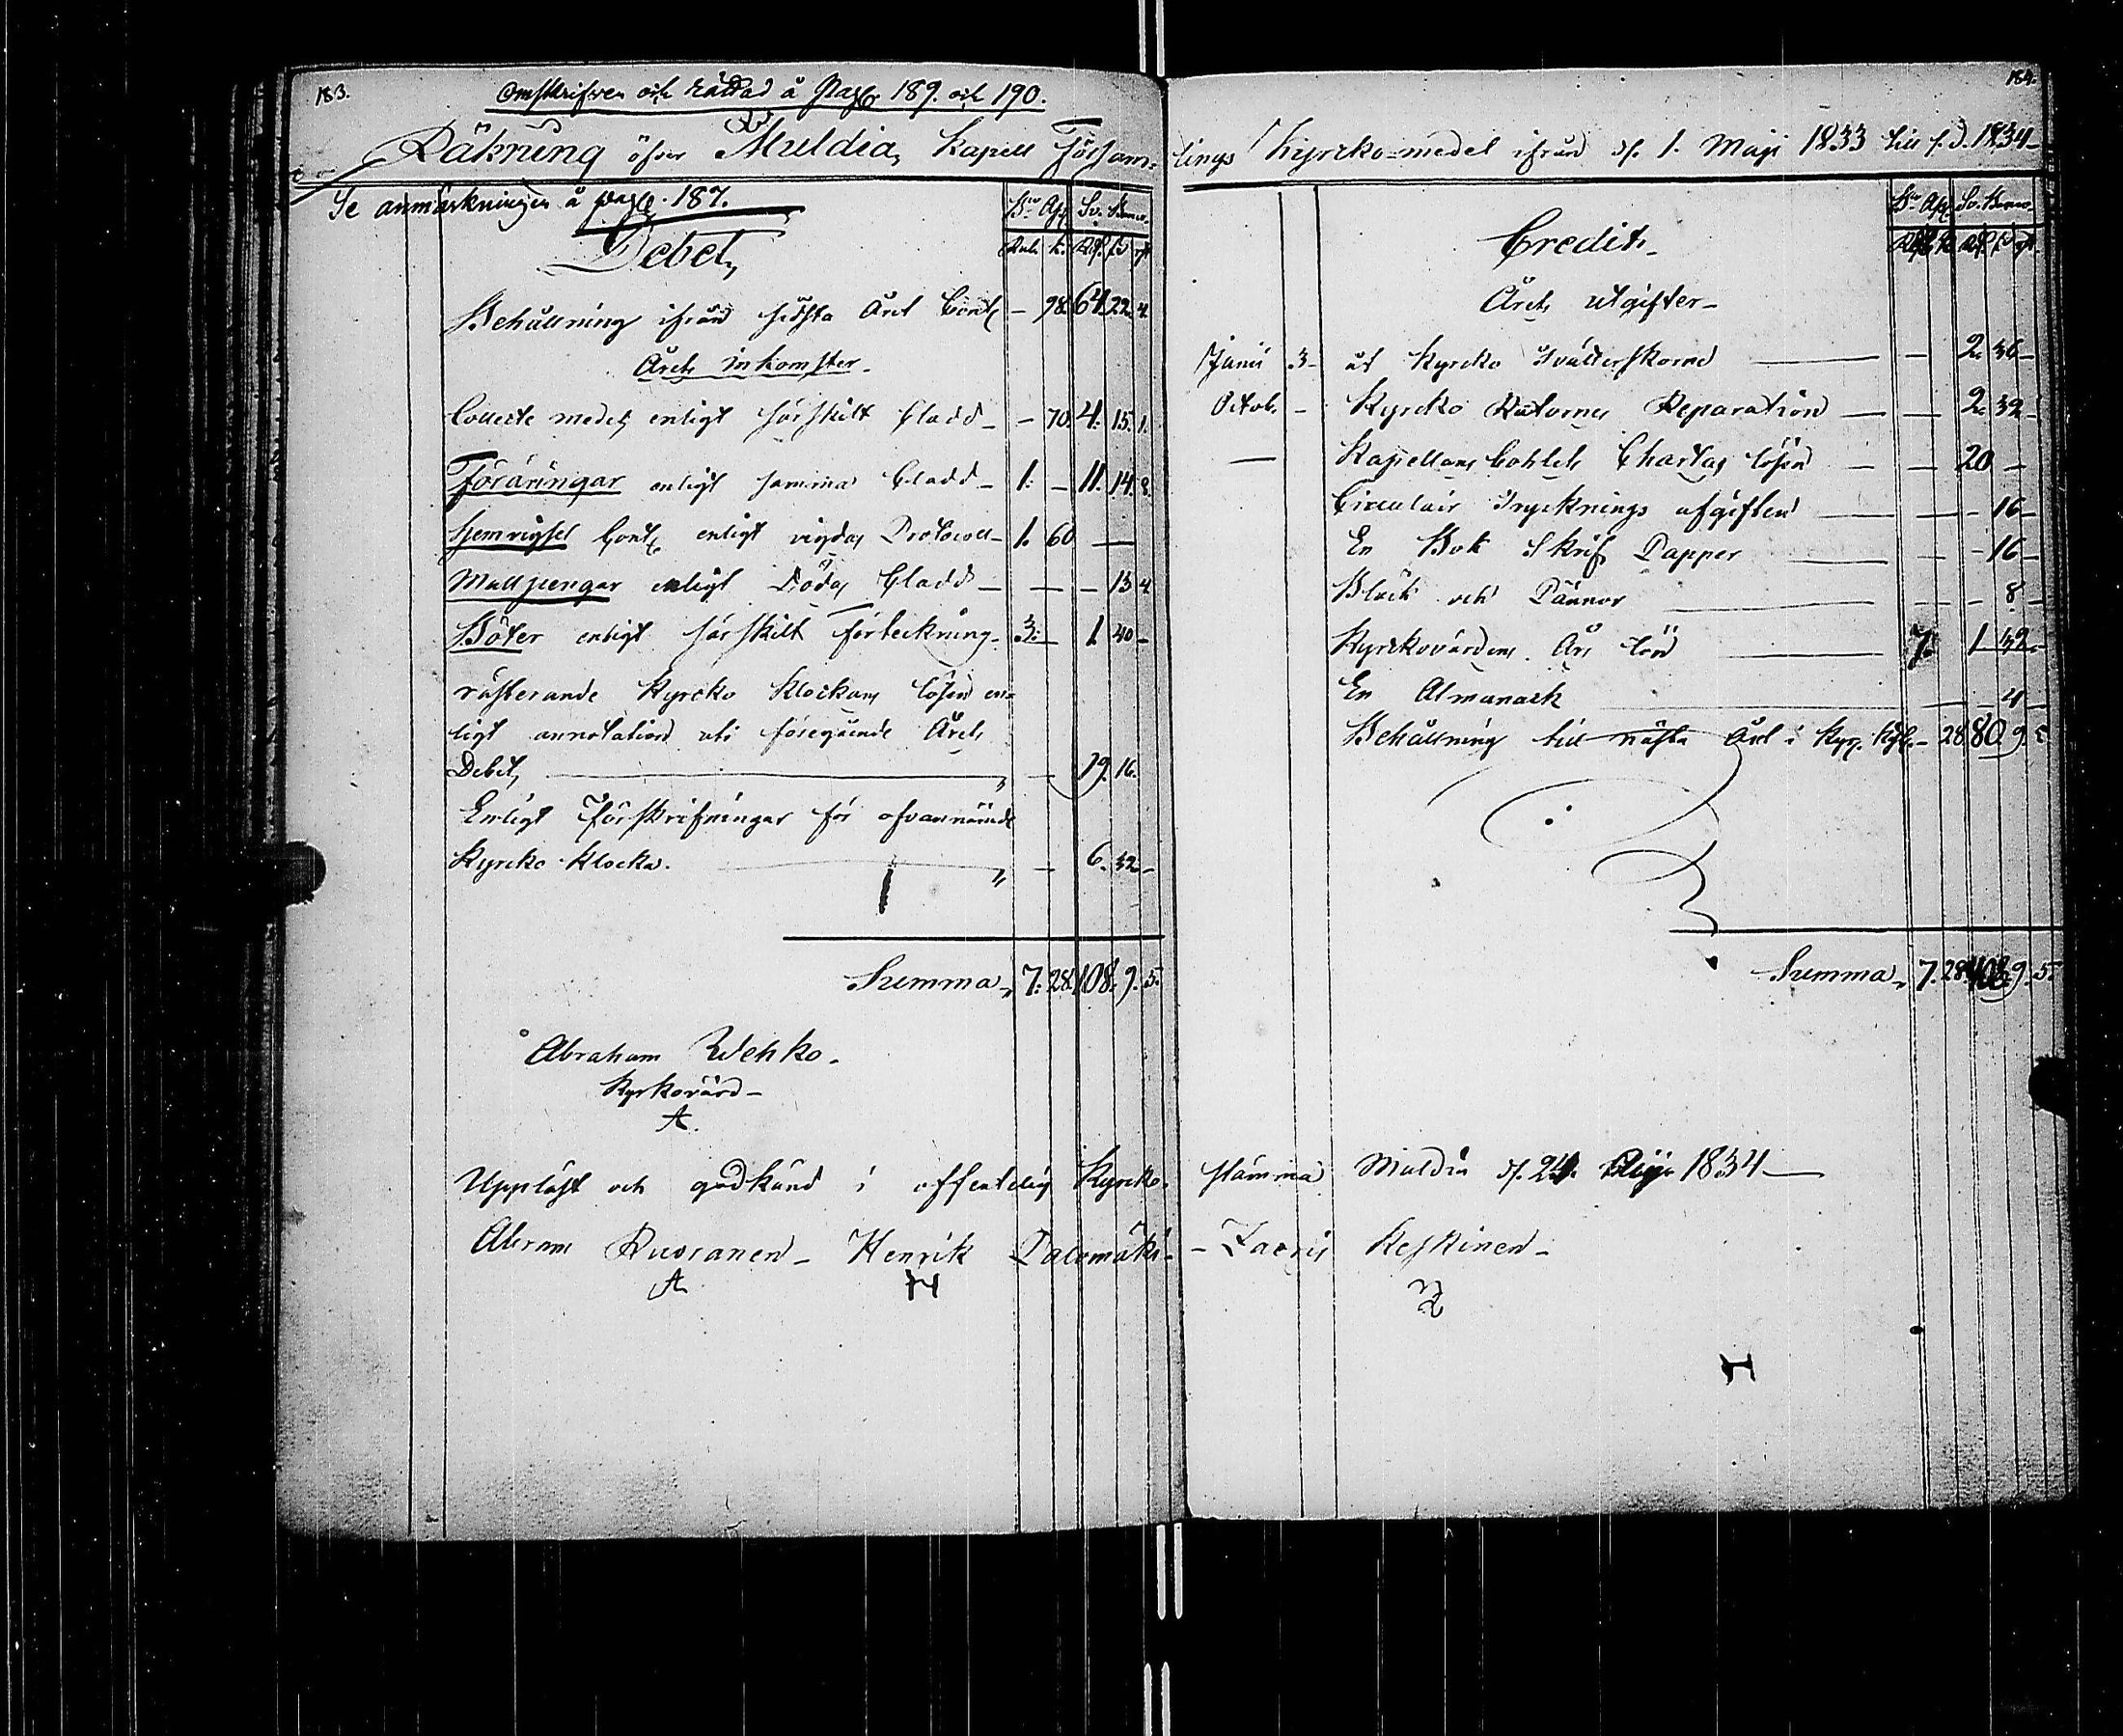 183.
Omskrifven och rättad å Pag. 189. och 190.
Räkning öfver Muldia Kapell Försam-
Se anmärkningen å pag. 187.
B:co Ass. Sv. Banco.
Debet,
Rub. k. Rd. s. rst
Behållning ifrån sidsta Året Cont. — 98. 64. 22. 4.
Årets inkomster.
Collecte medel, enligt särskilt bladd — — 70. 4. 15. 1.
Föräringar enligt samma bladd — 1. — 11. 14. 8.
Hemvigsel Cont. enligt vigdas Protocoll — 1. 60 —
Mullpengar enligt Dödas bladd — — — 13 4
Böter enligt särskilt Förteckning. 3. — 1 40 —
resterande Kyrcko Klockans lösen en-
ligt annotation uti föregående Årets
Debet, — 19. 16.
Enligt Förskrifningar för ofvannämde
Kyrcko Klocka. — 6. 32. —
Summa, 7. 28. 108. 9. 5.
Abraham Wehko.
Kyrkovärd —
A.
Uppläst och godkänd i offentelig Kyrcko-
Abram Ruoranen — Henrik Palomäki —
A H
184.
lings Kyrcko-medel ifrån d. 1. Maji 1833 till s. d. 1834 —
B:co Ass. Sv. Banco.
Credit.
Årets utgifter —
Junii 3 — åt Kyrcko Tvätterskorna — — 2. 36 —
Octob. — Kyrcko Rutornes Reparation — — 2. 32 —
— Kapellans Bohlets Chartas lösen — — 20 —
Circulair Trycknings afgiften — — — 16 —
En Bok Skrif Papper — — — 16 —
Bläck och Pännor — — — 8 —
Kyrckovärdens Års lön — 7. 1. 32. —
En Almanach — — — 4 —
Behållning till nästa Året i Kyr. K. — 28. 80. 9. 5
Summa, 7. 28. 108. 9. 5.
stämma Muldia d. 24. Maji 1834 —
— Zacris Keskinen —
Z